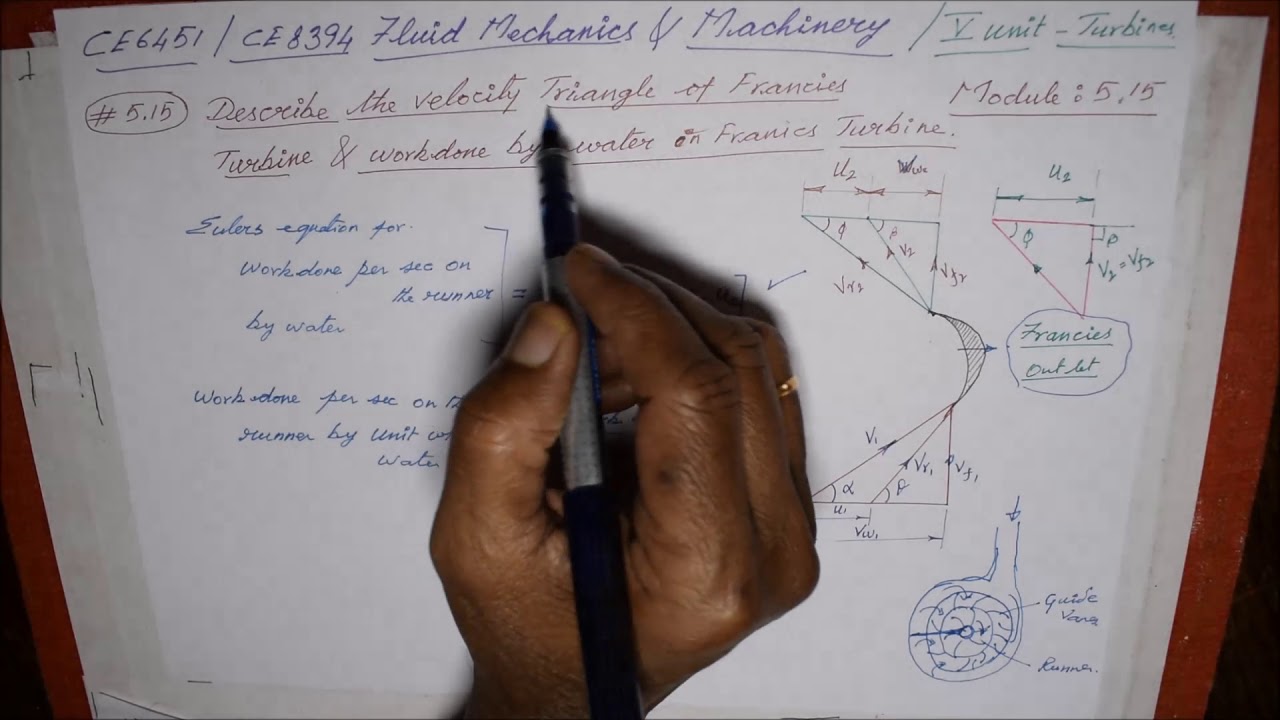 CE6451 / CE8394 Fluid Mechanics & Machinery / V unit - Turbines
# 5.15 Describe the velocity Triangle of Francies
Module : 5.15
Turbine & workdone by water on Franics Turbine.
Eulers equation for
workdone per sec on
the runner =
by water
workdone per sec on
runner by unit
water
U2
U2
φ
β
V2
Vr2
Vf2
φ
β
V2 = Vf2
Francies
outlet
V1
Vr1
Vf1
α
θ
u1
Vw1
Guide
Vane
Runner.